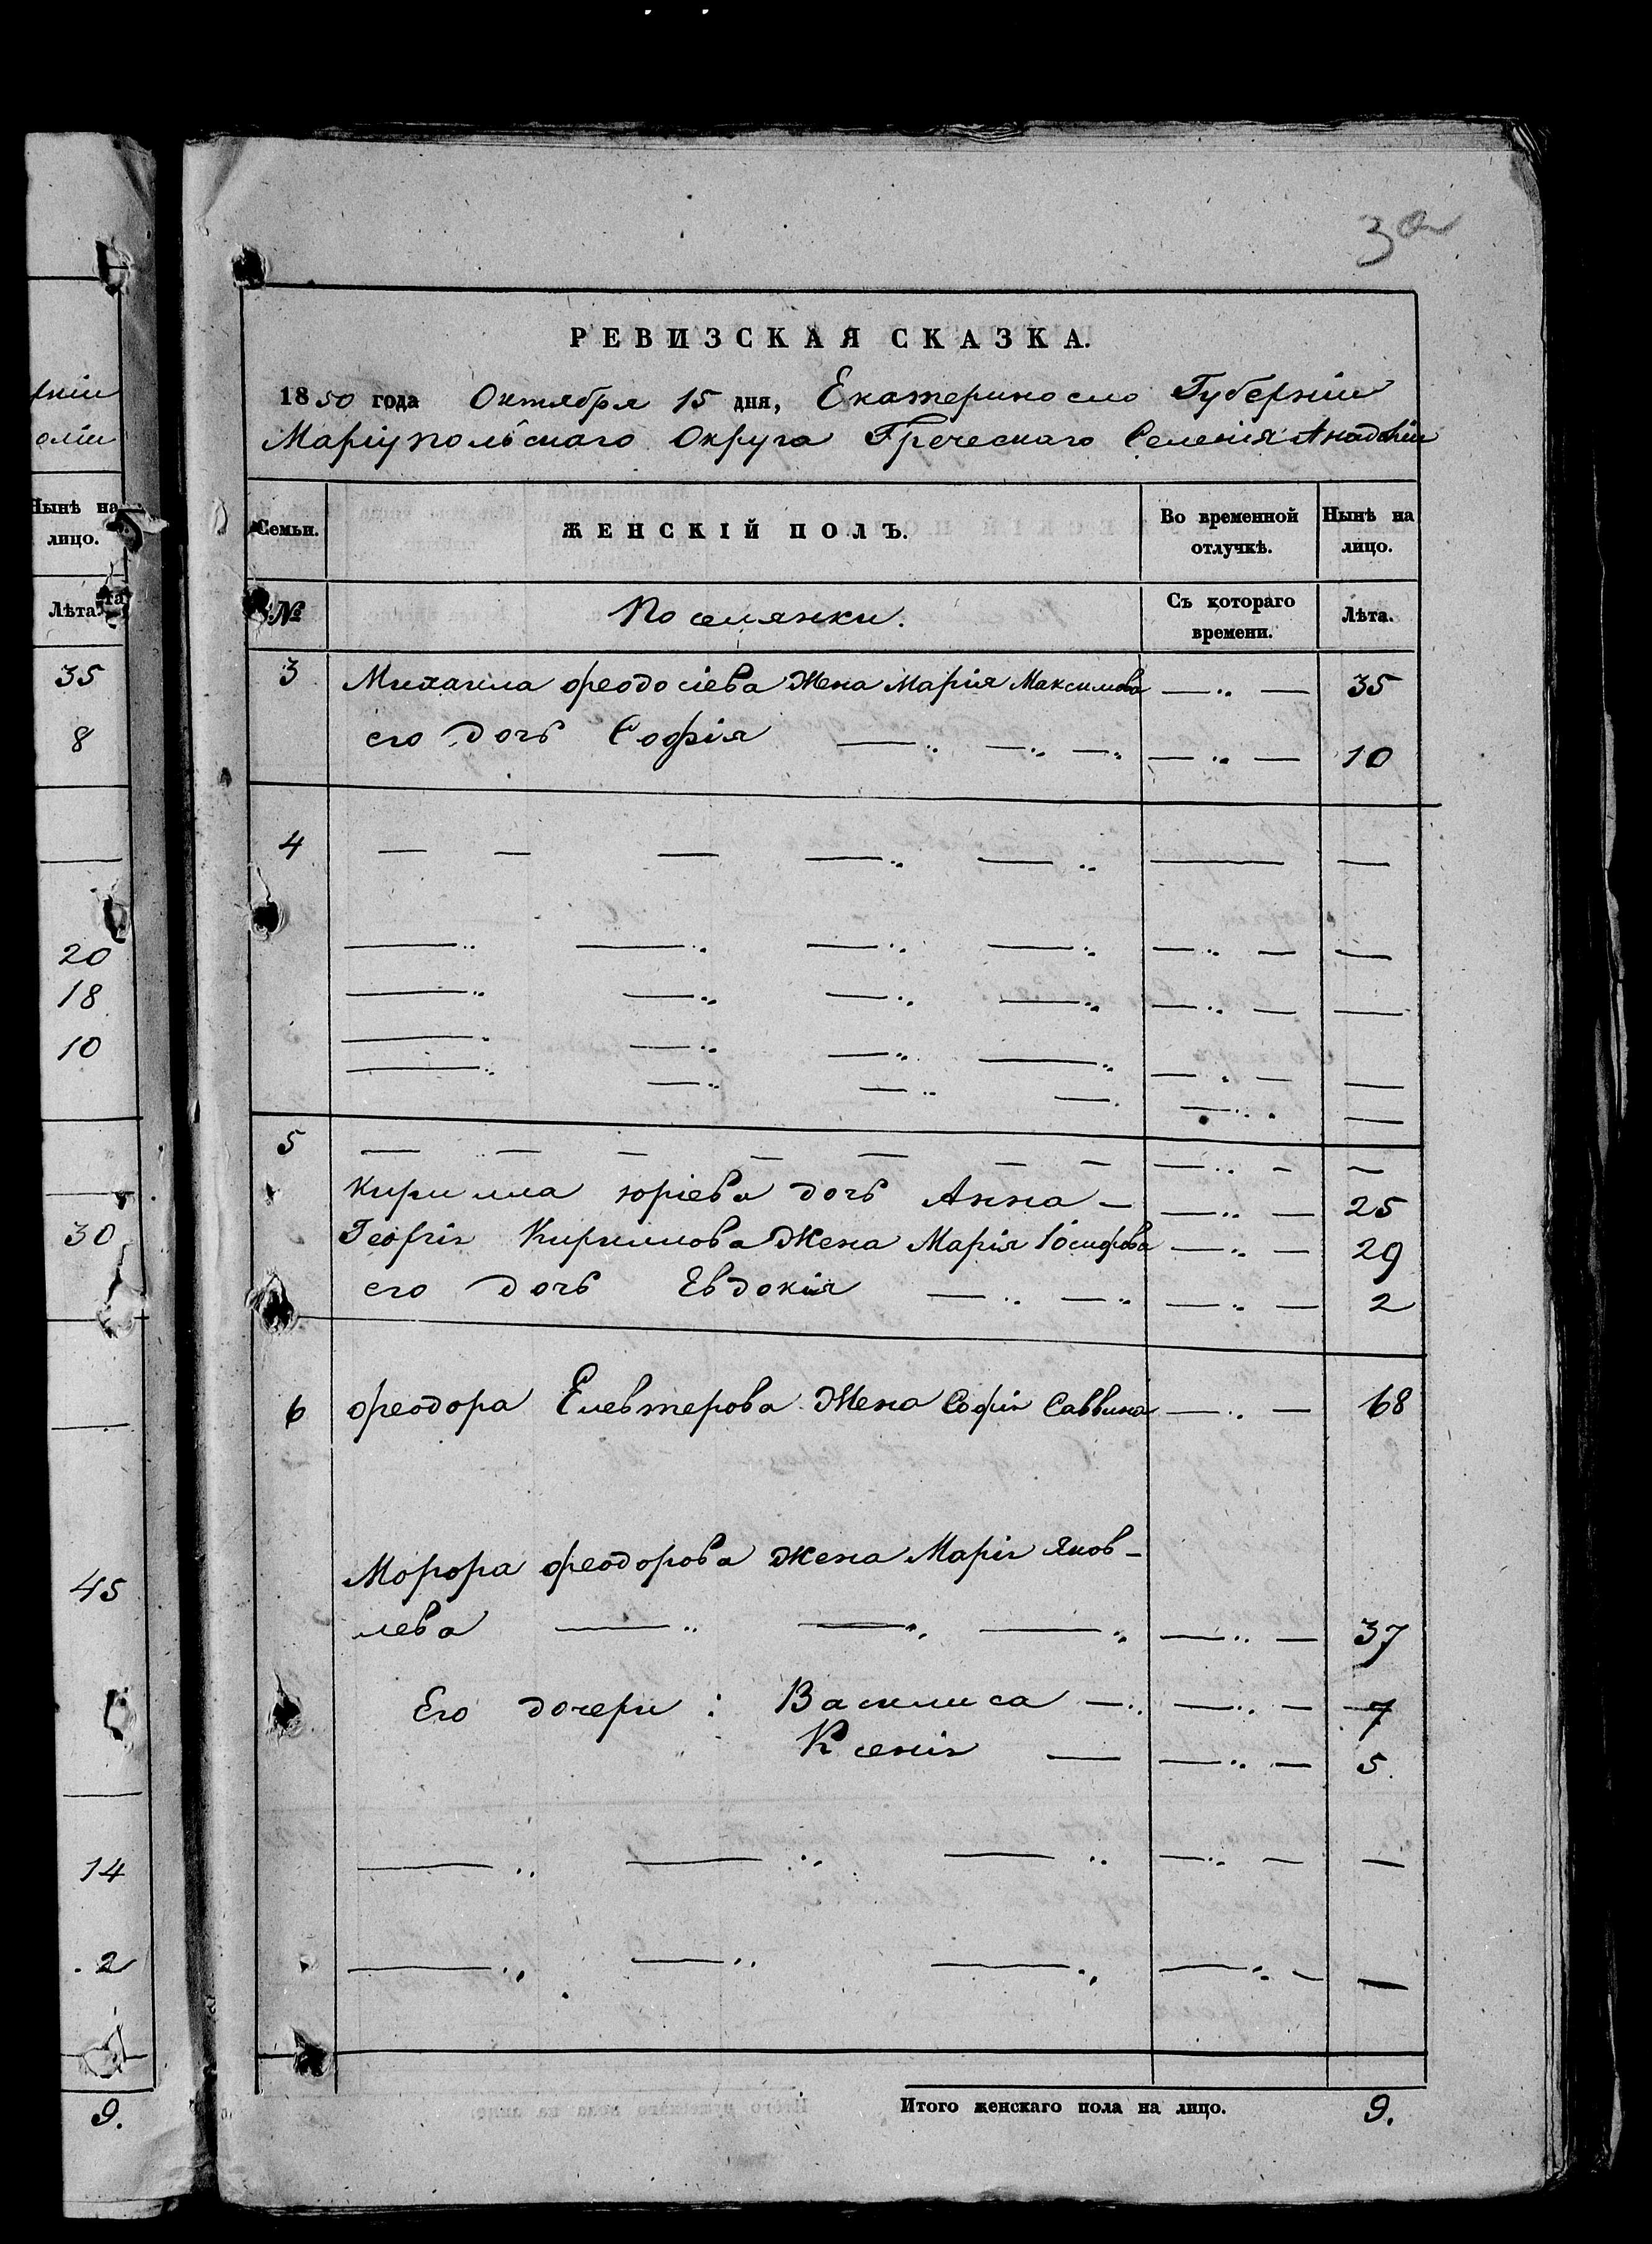 ніи
оліи
Нынѣ на
лицо.
Лѣта.
35
8
20
18
10
30
45
14
2
9.
3а
РЕВИЗСКАЯ СКАЗКА.
1850 года Октября 15 дня, Екатериносло Губерніи
Маріупольскаго Округа Греческаго Селенія
Семьи. ЖЕНСКІЙ ПОЛЪ. Во временной отлучкѣ. Нынѣ на лицо.
№ Поселянки. Съ котораго времени. Лѣта.
3 Михаила Феодосіева Жена Марія Максимова — 35
его дочь София — 10
4 —
5 —
Кирилла Юріева дочь Анна — 25
Георгія Кириллова Жена Марія Іосифова — 29
его дочь Евдокія — 2
6 Феодора Елевтерова Жена Софія Саввина — 68
Феодорова Жена Марія Яков-
лева — 37
Его дочери: Василиса — 7
Ксенія — 5
Итого женскаго пола на лицо. 9.